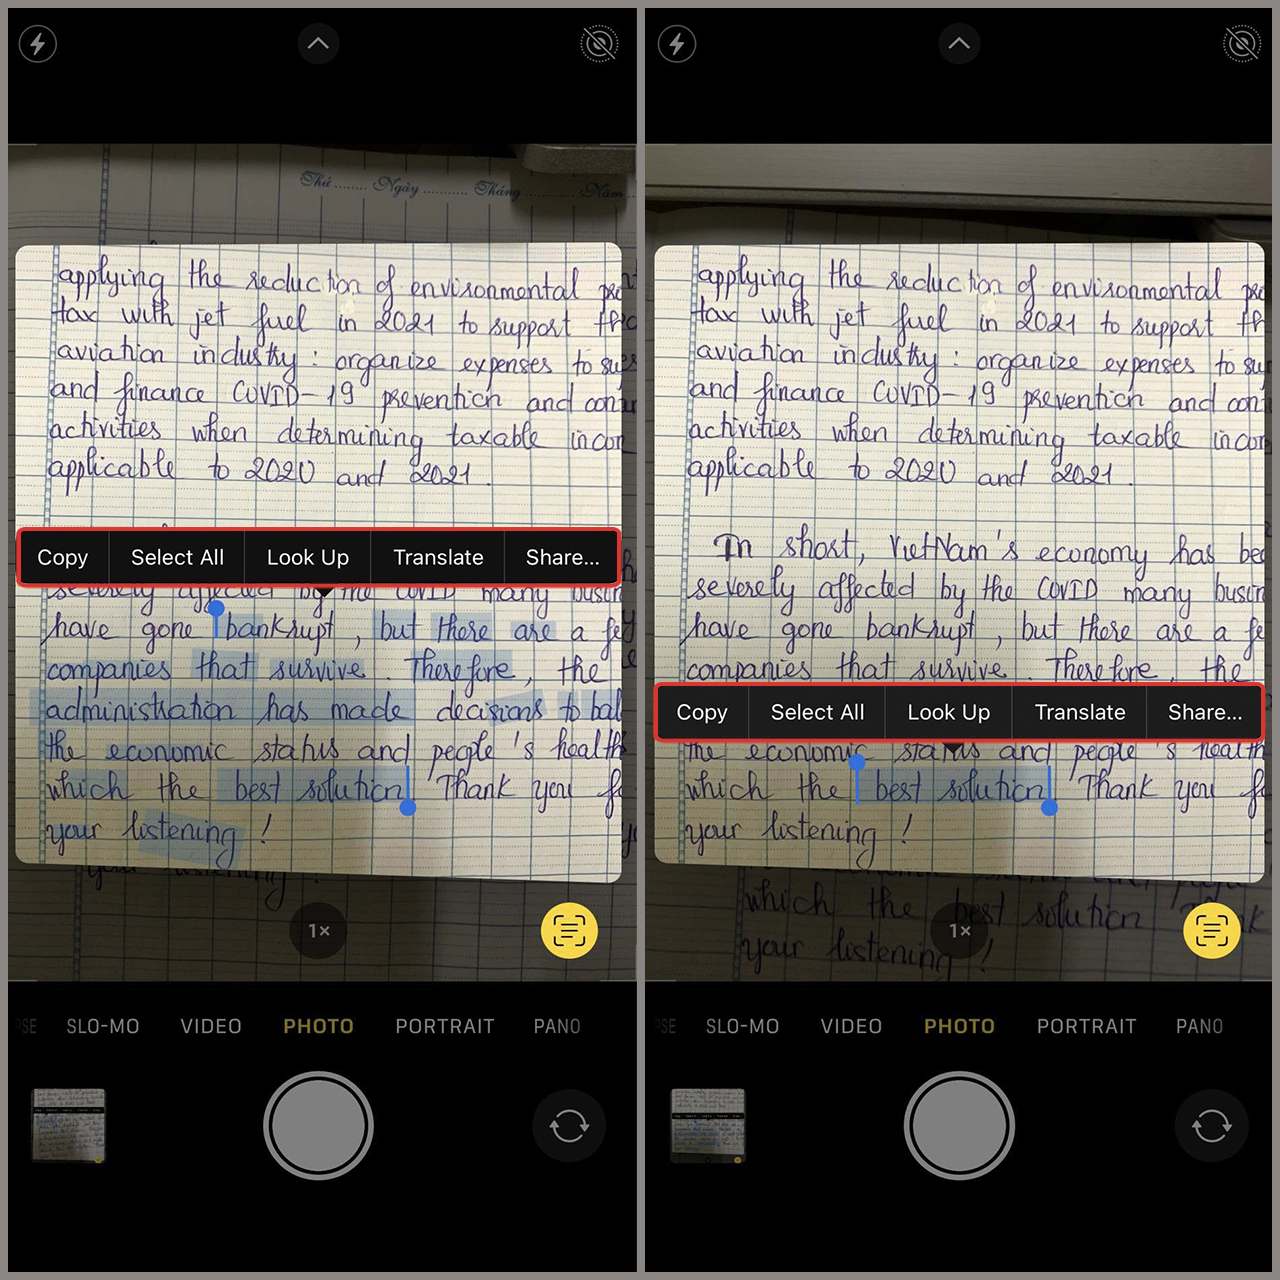 Thứ ........ Ngày ........... Tháng ............ Năm
applying the reduction of environmental
tax with jet fuel in 2021 to support
aviation industry : organize expenses to
and finance COVID-19 prevention and
activities when determining taxable
applicable to 2020 and 2021 .
Copy Select All Look Up Translate Share...
severely affected by the COVID many
have gone bankrupt , but there are a
companies that survive . Therefore, the
administration has made decisions to
the economic status and people 's health
which the best solution Thank you
your listening !
1×
SLO-MO VIDEO PHOTO PORTRAIT PANO
applying the reduction of environmental
tax with jet fuel in 2021 to support
aviation industry : organize expenses to
and finance COVID-19 prevention and
activities when determining taxable
applicable to 2020 and 2021 .
In short, VietNam's economy has
severely affected by the COVID many
have gone bankrupt , but there are a
companies that survive . Therefore, the
Copy Select All Look Up Translate Share...
the economic status and people 's health
which the best solution Thank you
your listening !
which the best solution
your listening !
1×
SLO-MO VIDEO PHOTO PORTRAIT PANO